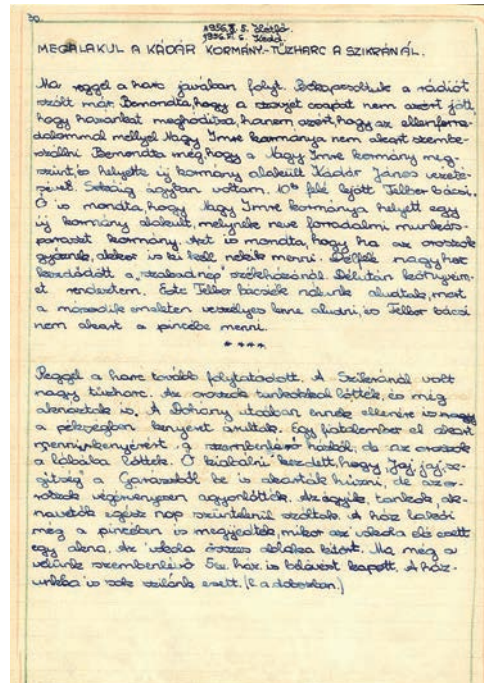 30.
1956.XI. 5. Hétfő.
1956.XI. 6. Kedd.
MEGALAKUL A KÁDÁR KORMÁNY - TŰZHARC A SZIKRÁNÁL.
Ma reggel a harc javában folyt. Bekapcsoltuk a rádiót
szólt már. Bemondta, hogy a szovjet csapat nem azért jött,
hogy hazánkat meghódítsa, hanem azért, hogy az ellenforra-
dalommal mellyel Nagy Imre kormánya nem akart szembe-
szállni. Bemondta még, hogy a Nagy Imre kormány meg-
szünt, és helyette új kormány alakult Kádár János vezeté-
sével. Sokáig ágyban voltam. 10 felé lejött Telber bácsi.
Ő is mondta, hogy Nagy Imre kormánya helyett egy
új kormány alakult, melynek neve forradalmi munkás-
paraszt kormány. Azt is mondta, hogy ha az oroszok
győznek, akkor is ki kell nekik menni. Délfelé nagy harc
kezdődött a szabadnép székházánál. Délután könyveim-
et rendeztem. Este Telber bácsiék nálunk aludtak, mert
a második emeleten veszélyes lenne aludni, és Telber bácsi
nem akart a pincébe menni.
****
Reggel a harc tovább folytatódott. A Szikránál volt
nagy tűzharc. Az oroszok tankokkal lőttek, és még
aknáztak is. A Dohány utcában ennek ellenére is
a pékségben kenyeret árultak. Egy fiatalember el akart
menni kenyérért a szembenlévő házból, de az oroszok
a lábába lőttek. Ő kiabálni kezdett, hogy, jaj, jaj, se-
gítség a Garázsból be is akarták húzni, de az o-
roszok végérvényesen agyonlőtték. Az ágyúk, tankok, ak-
navetők egész nap szüntelenül szóltak. A ház lakói
még a pincében is megijedtek, mikor az iskola elé esett
egy akna. Az iskola összes ablaka kitört. Ma még a
velünk szembenlévő 5sz. ház is belövést kapott. A ház-
unkba is sok szilánk esett. (l. a dobozban.)